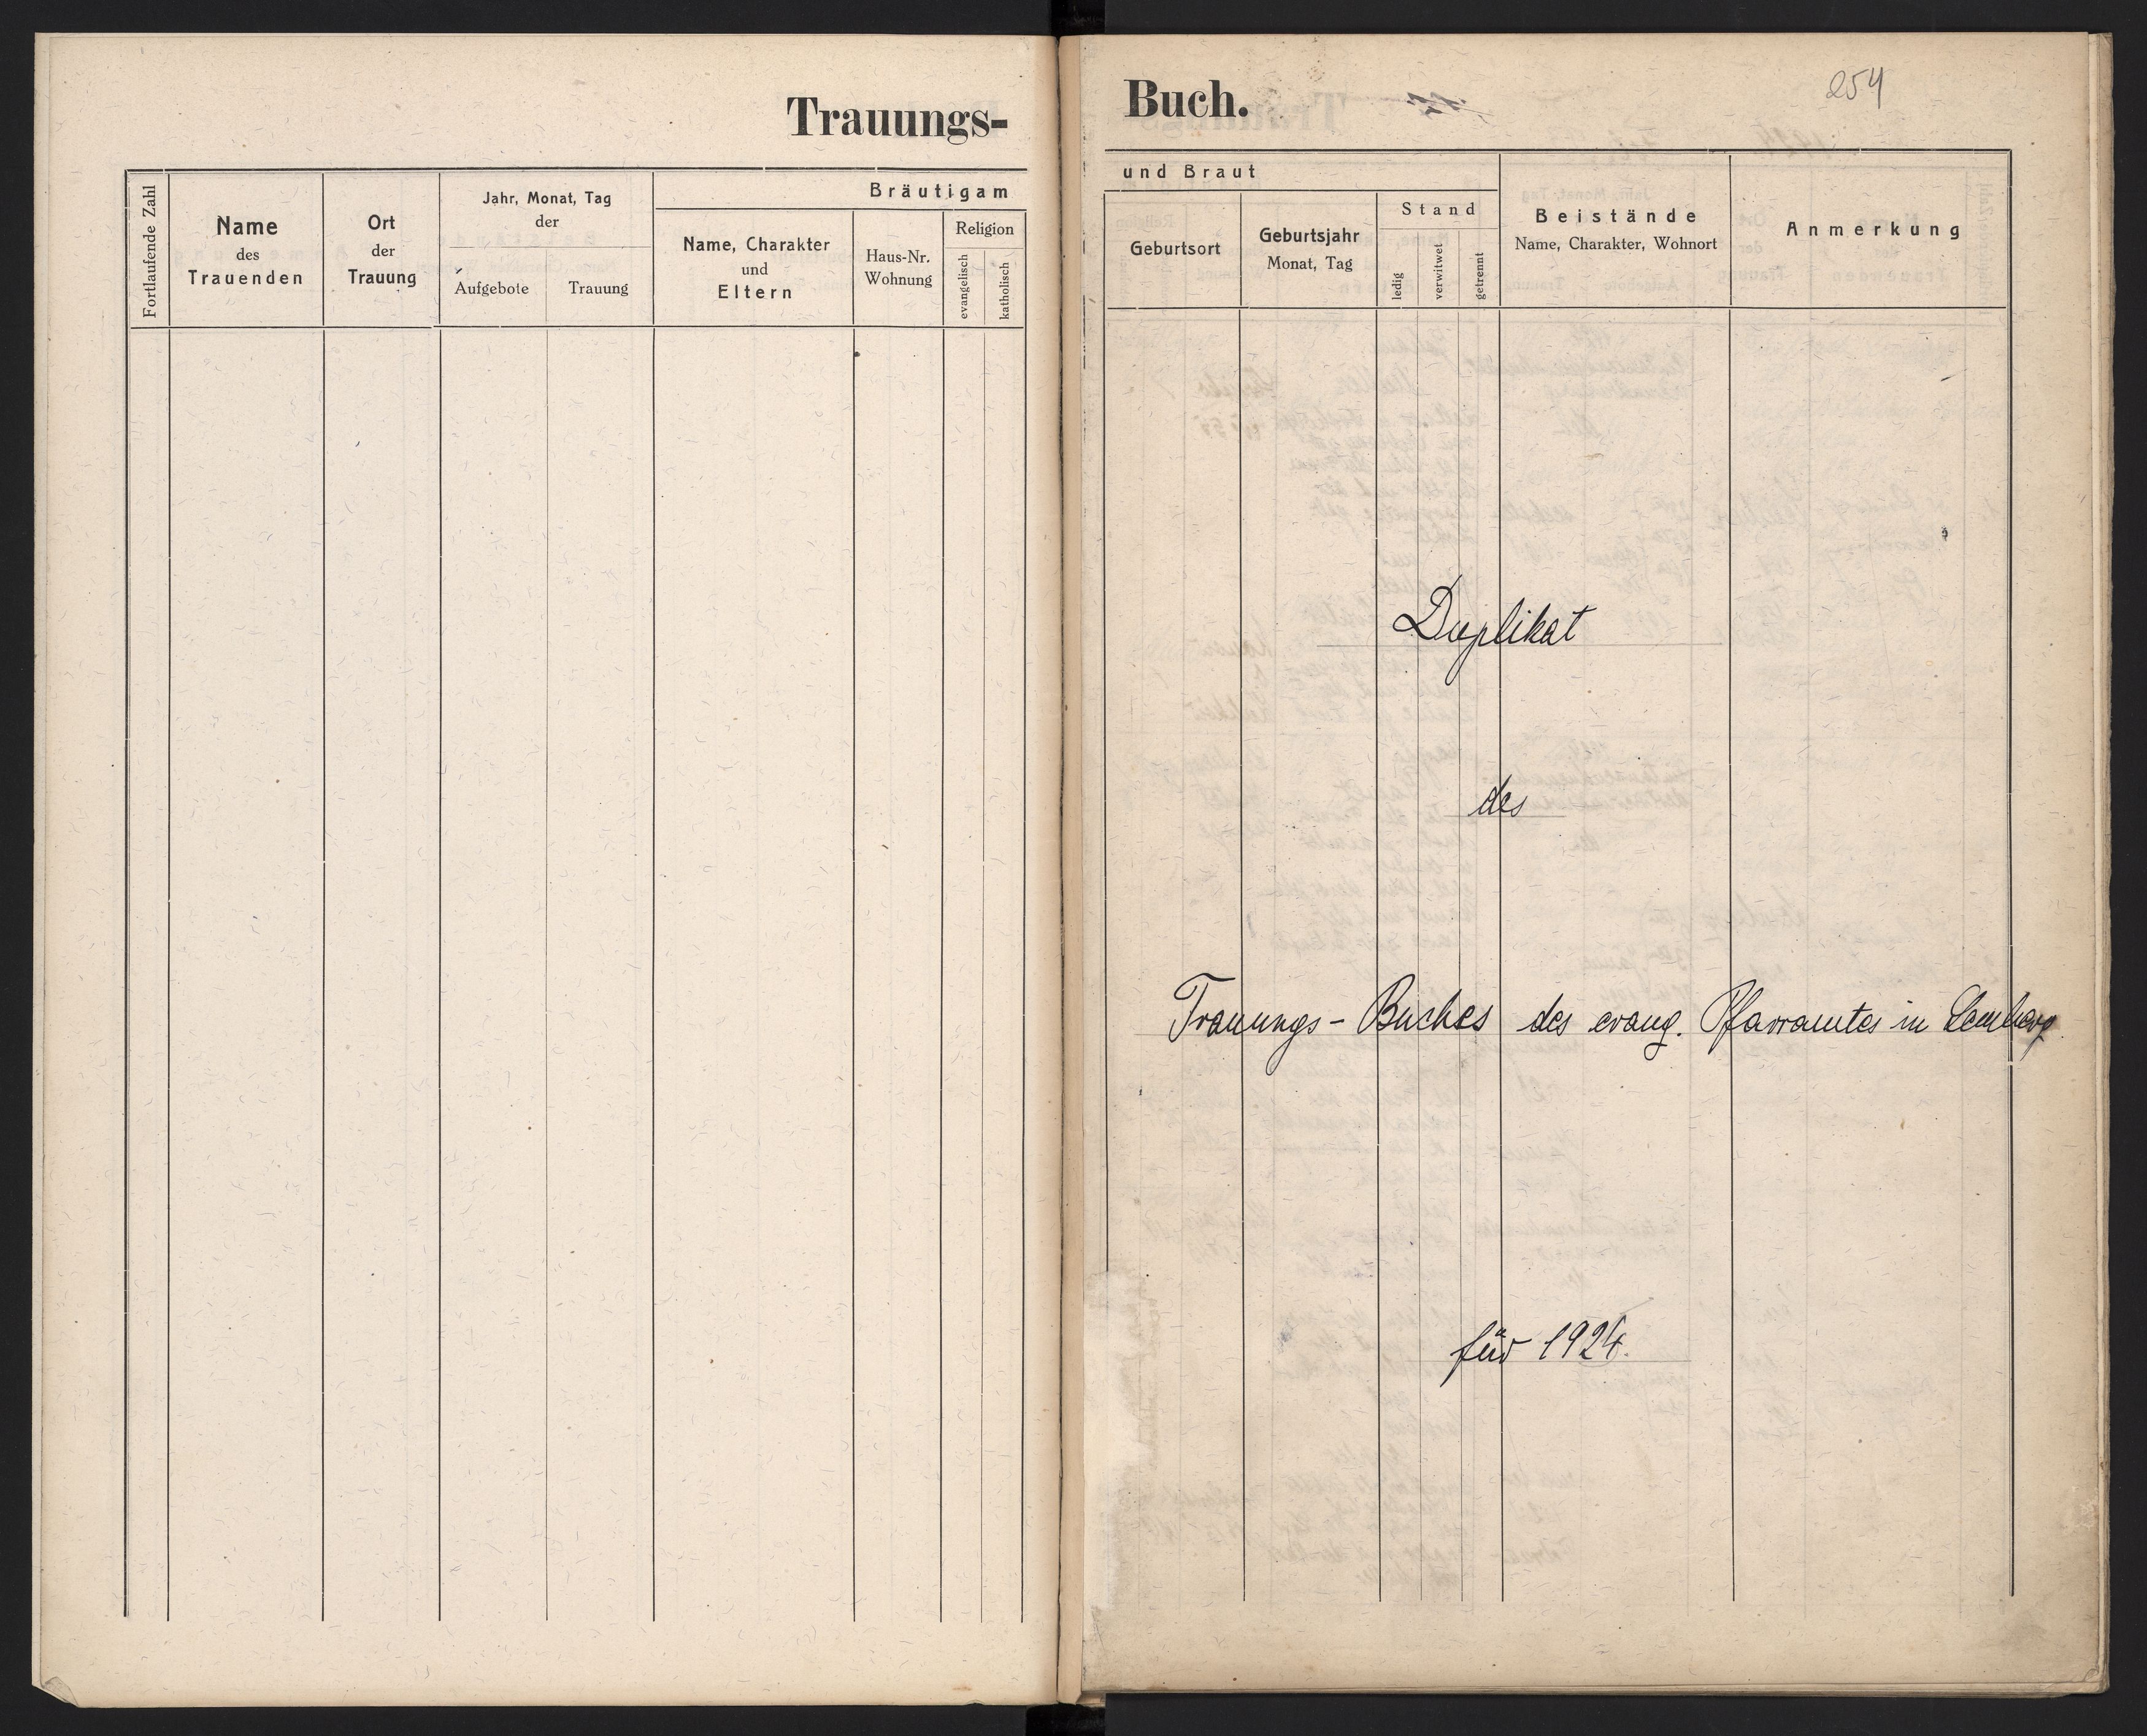 Trauungs-
Fortlaufende Zahl
Name
des
Trauenden
Ort
der
Trauung
Jahr, Monat, Tag
der
Aufgebote
Trauung
Bräutigam
Name, Charakter
und
Eltern
Haus-Nr.
Wohnung
Religion
evangelisch
katholisch
Buch.
254
und Braut
Geburtsort
Geburtsjahr
Monat, Tag
Stand
ledig
verwitwet
getrennt
Beistände
Name, Charakter, Wohnort
Anmerkung
Duplikat
des
Trauungs- Buches des evang. Pfarramtes in Lemberg
für 1924.